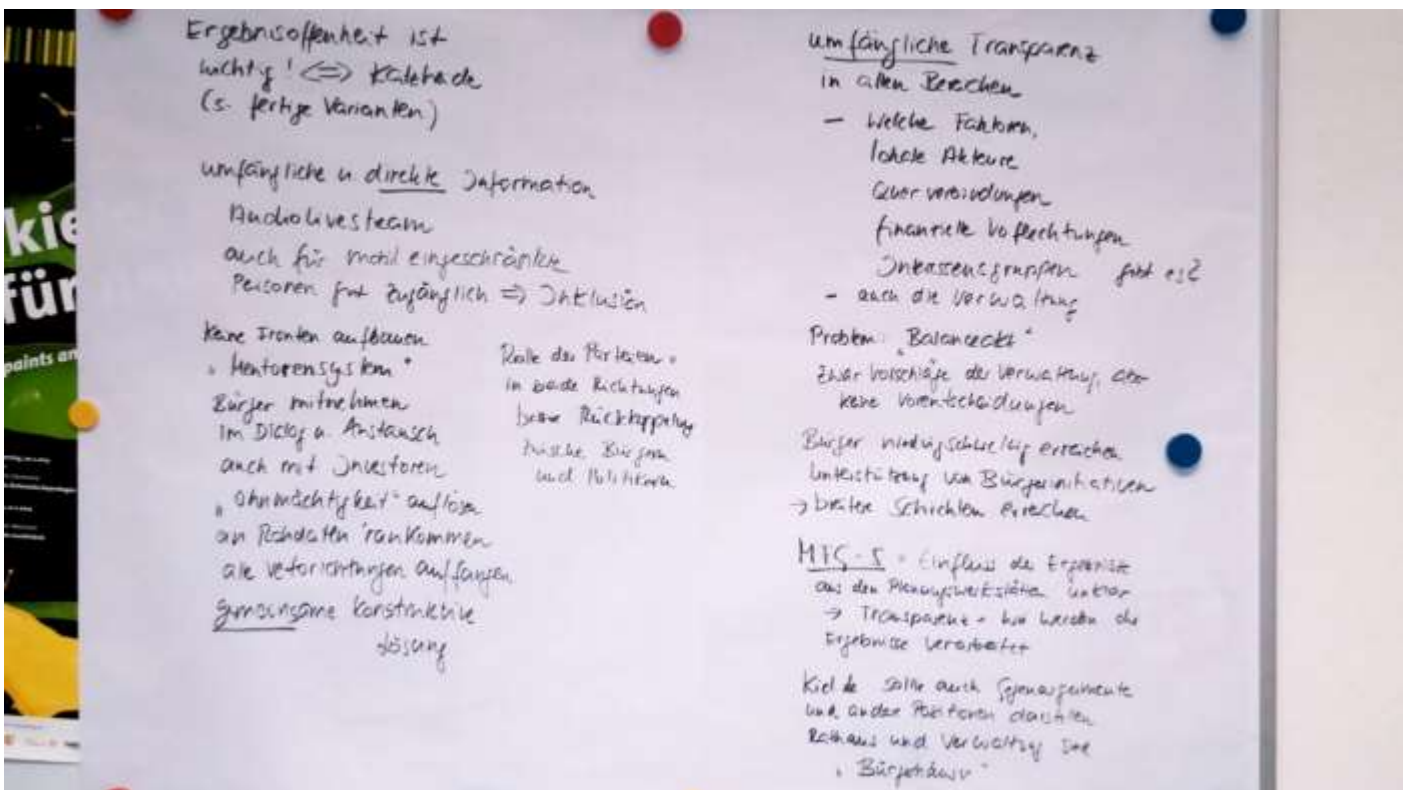 kie
für
paints an
Ergebnisoffenheit ist
wichtig! <=> Katzheide
(s. fertige Varianten)
umfängliche u direkte Information
Audiolivesteam
auch für mobil eingeschränkte
Personen gut zugänglich => Inklusion
Keine Fronten aufbauen
"Mentorensystem"
Bürger mitnehmen
im Dialog u. Austausch
auch mit Investoren
"Ohnmächtigkeit" auflösen
an Rohdaten 'rankommen
alle
auffangen
gemeinsame konstruktive
Lösung
Rolle der Parteien =
in beide Richtungen
Rückkoppelung
zwische Bürgern
und Politikern
umfängliche Transparenz
in allen Bereichen
- Welche Faktoren,
lokale Akteure
Querverbindungen
finanzielle Verflechtungen
Interessensgruppen gibt es?
- auch die Verwaltung
Problem: "Balanceakt"
zwar Vorschläge der Verwaltung, aber
keine Vorentscheidungen
Bürger niedrigschwellig erreichen
Unterstützung von Bürgerinitiativen
-> breitere Schichten erreichen
Einfluss der Ergebnisse
aus den Planungswerkstätten unklar
-> Transparenz - wie werden die
Ergebnisse verarbeitet
Kiel.de sollte auch Gegenargumente
und andere Positionen darstellen
Rathaus und Verwaltung